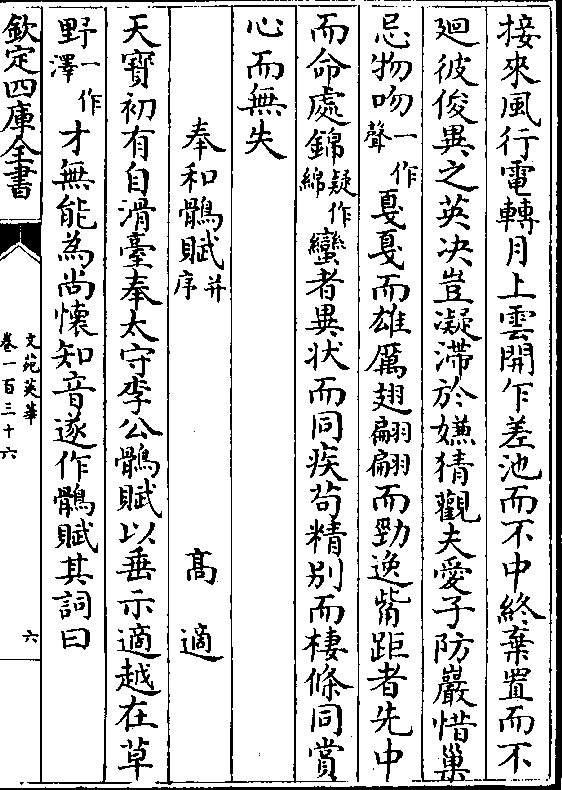 接來風行電轉月上雲開乍差池而不中終棄置而不
廻彼俊異之英决豈凝滯於嫌猜觀夫愛子防巖惜巢
忌物吻一作聲戛戛而雄厲翅翩翩而勁逸觜距者先中
而命處錦疑作綿蠻者異狀而同疾苟精別而棲條同賞
心而無失
奉和鶻賦并序 髙適
天寳初有自滑臺奉太守李公鶻賦以垂示適越在草
野一作澤才無能為尚懷知音遂作鶻賦其詞曰
欽定四庫全書
文苑英華
卷一百三十六
六